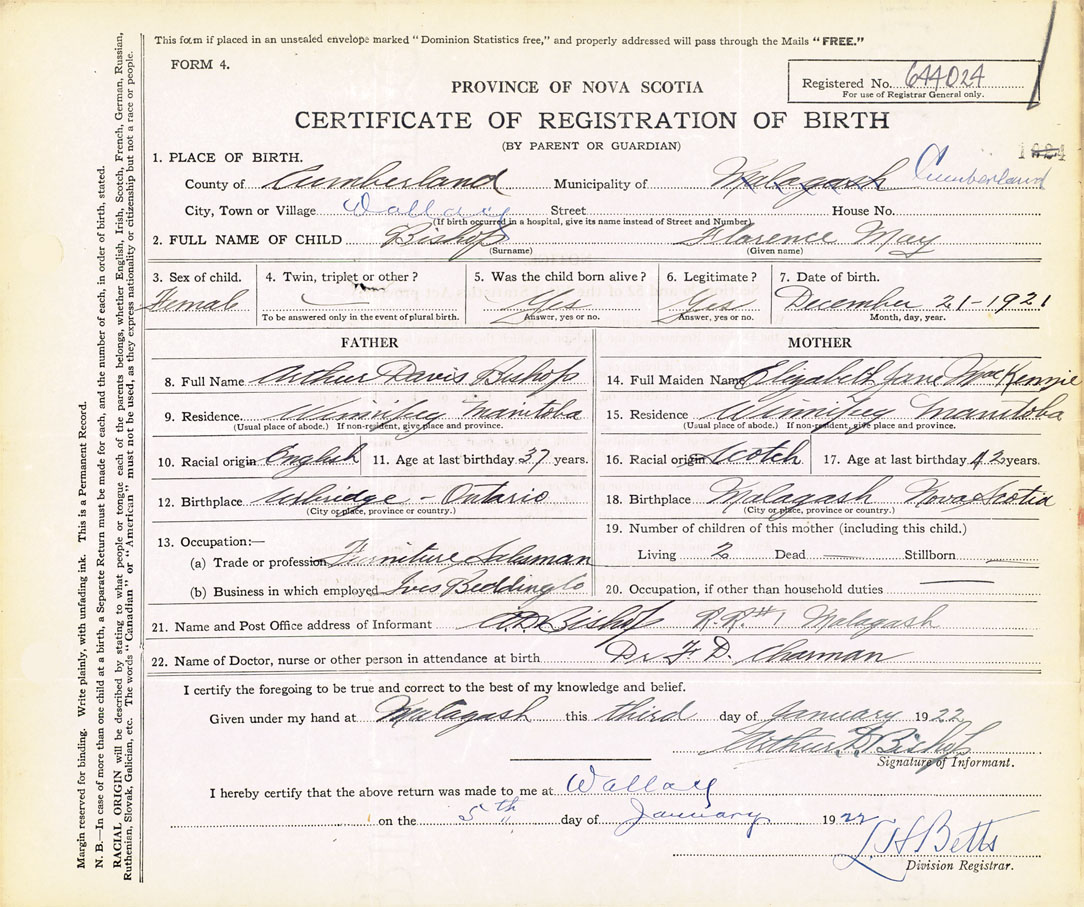 This form if placed in an unsealed envelope marked "Dominion Statistics free," and properly addressed will pass through the Mails "FREE."
FORM 4.
Registered No. 644024
For use of Registrar General only.
PROVINCE OF NOVA SCOTIA
CERTIFICATE OF REGISTRATION OF BIRTH
(BY PARENT OR GUARDIAN)
1. PLACE OF BIRTH.
County of Cumberland Municipality of Malagash Cumberland
City, Town or Village Wallace Street House No.
(If birth occurred in a hospital, give its name instead of Street and Number).
2. FULL NAME OF CHILD Bishop Florence May
(Surname) (Given name)
3. Sex of child. 4. Twin, triplet or other? 5. Was the child born alive? 6. Legitimate? 7. Date of birth.
Female Yes Yes December 21-1921
To be answered only in the event of plural birth. Answer, yes or no. Answer, yes or no. Month, day, year.
FATHER MOTHER
8. Full Name Arthur Davis Bishop 14. Full Maiden Name Elizabeth Jane MacKennie
9. Residence. Winnipeg Manitoba 15. Residence Winnipeg Manitoba
(Usual place of abode.) If non-resident, give place and province. (Usual place of abode.) If non-resident, give place and province.
10. Racial origin English 11. Age at last birthday 37 years. 16. Racial origin Scotch 17. Age at last birthday 42 years.
12. Birthplace Uxbridge - Ontario 18. Birthplace Malagash Nova Scotia
(City or place, province or country.) (City or place, province or country.)
13. Occupation:— 19. Number of children of this mother (including this child.)
(a) Trade or profession Furniture Salesman Living 2 Dead Stillborn
(b) Business in which employed Ives Bedding Co 20. Occupation, if other than household duties
21. Name and Post Office address of Informant A.D. Bishop R.R.#1 Malagash
22. Name of Doctor, nurse or other person in attendance at birth Dr F. D. Charman
I certify the foregoing to be true and correct to the best of my knowledge and belief.
Given under my hand at Malagash this third day of January 1922
Arthur D. Bishop
Signature of Informant.
I hereby certify that the above return was made to me at Wallace
on the 5th day of January 1922
L H Betts
Division Registrar.
Margin reserved for binding. Write plainly, with unfading ink. This is a Permanent Record.
N. B.—In case of more than one child at a birth, a Separate Return must be made for each, and the number of each, in order of birth, stated.
RACIAL ORIGIN will be described by stating to what people or tongue each of the parents belongs, whether English, Irish, Scotch, French, German, Russian,
Ruthenian, Slovak, Galician, etc. The words "Canadian" or "American" must not be used, as they express nationality or citizenship but not a race or people.